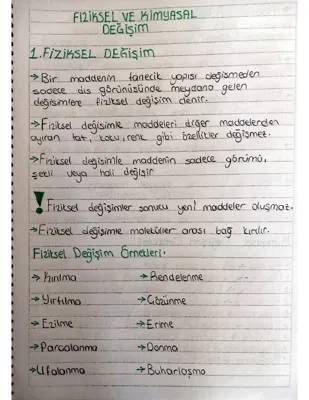 FİZİKSEL VE KİMYASAL
DEĞİŞİM
1.FİZİKSEL DEĞİŞİM
→Bir maddenin tanecik yapısı değişmeden
sadece dış görünüşünde meydana gelen
değişimlere fiziksel değişim denir.
→Fiziksel değişimle maddeleri diğer maddelerden
ayıran tat, koku, renk gibi özellikler değişmez.
→Fiziksel değişimle maddenin sadece görünümü,
şekli veya hali değişir
! Fiziksel değişimler sonucu yeni maddeler oluşmaz.
→Fiziksel değişimle moleküller arası bağ kırılır.
Fiziksel Değişim Örnekleri:
→Kırılma →Rendelenme
→Yırtılma →Çözünme
→Ezilme →Erime
→Parçalanma →Donma
→Ufalanma →Buharlaşma